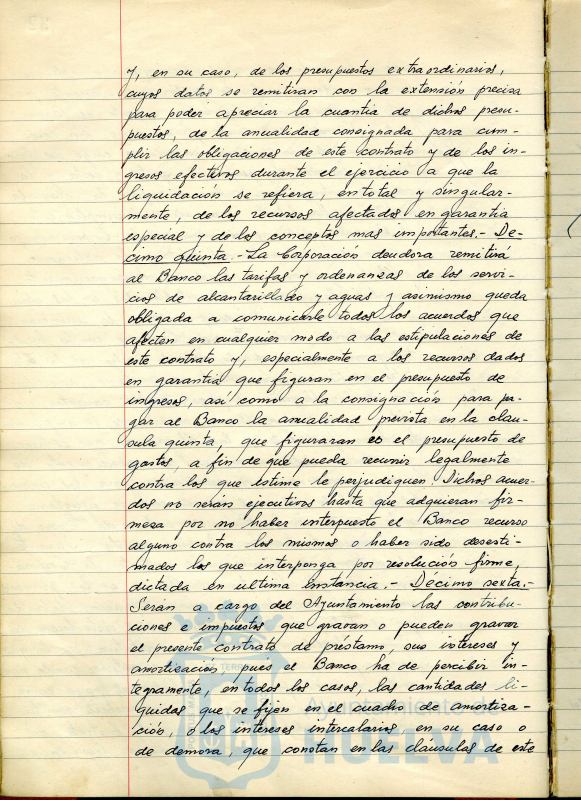 y, en su caso, de los presupuestos extraordinarios,
cuyos datos se remitiran con la extensión precisa
para poder apreciar la cuantia de dichos presu-
puestos, de la anualidad consignada para cum-
plir las obligaciones de este contrato y de los in-
gresos efectivos durante el ejercicio a que la
liquidación se refiera, en total y singular-
mente, de los recursos afectados en garantia
especial y de los conceptos mas importantes.- De-
cimo quinta.- La Corporación deudora remitirá
al Banco las tarifas y ordenanzas de los servi-
cios de alcantarillado y aguas y asimismo queda
obligada a comunicarle todos los acuerdos que
afecten en cualquier modo a las estipulaciones de
este contrato y, especialmente a los recursos dados
en garantia que figuran en el presupuesto de
ingresos, asi como a la consignación para pa-
gar al Banco la anualidad prevista en la clau-
sula quinta, que figuraran en el presupuesto de
gastos, a fin de que pueda recurrir legalmente
contra los que estime le perjudiquen. Dichos acuer-
dos no serán ejecutivos hasta que adquieran fir-
meza por no haber interpuesto el Banco recurso
alguno contra los mismos o haber sido desesti-
mados los que interponga, por resolución firme,
dictada en ultima instancia.- Decimo sexta.-
Serán a cargo del Ayuntamiento las contribu-
ciones e impuestos que gravan o pueden gravar
el presente contrato de préstamo, sus intereses y
amortización, pues el Banco ha de percibir in-
tegramente, en todos los casos, las cantidades li-
quidas que se fijen en el cuadro de amortiza-
ción, o los intereses intercalarios en su caso o
de demora, que constan en las cláusulas de este
HUELVA